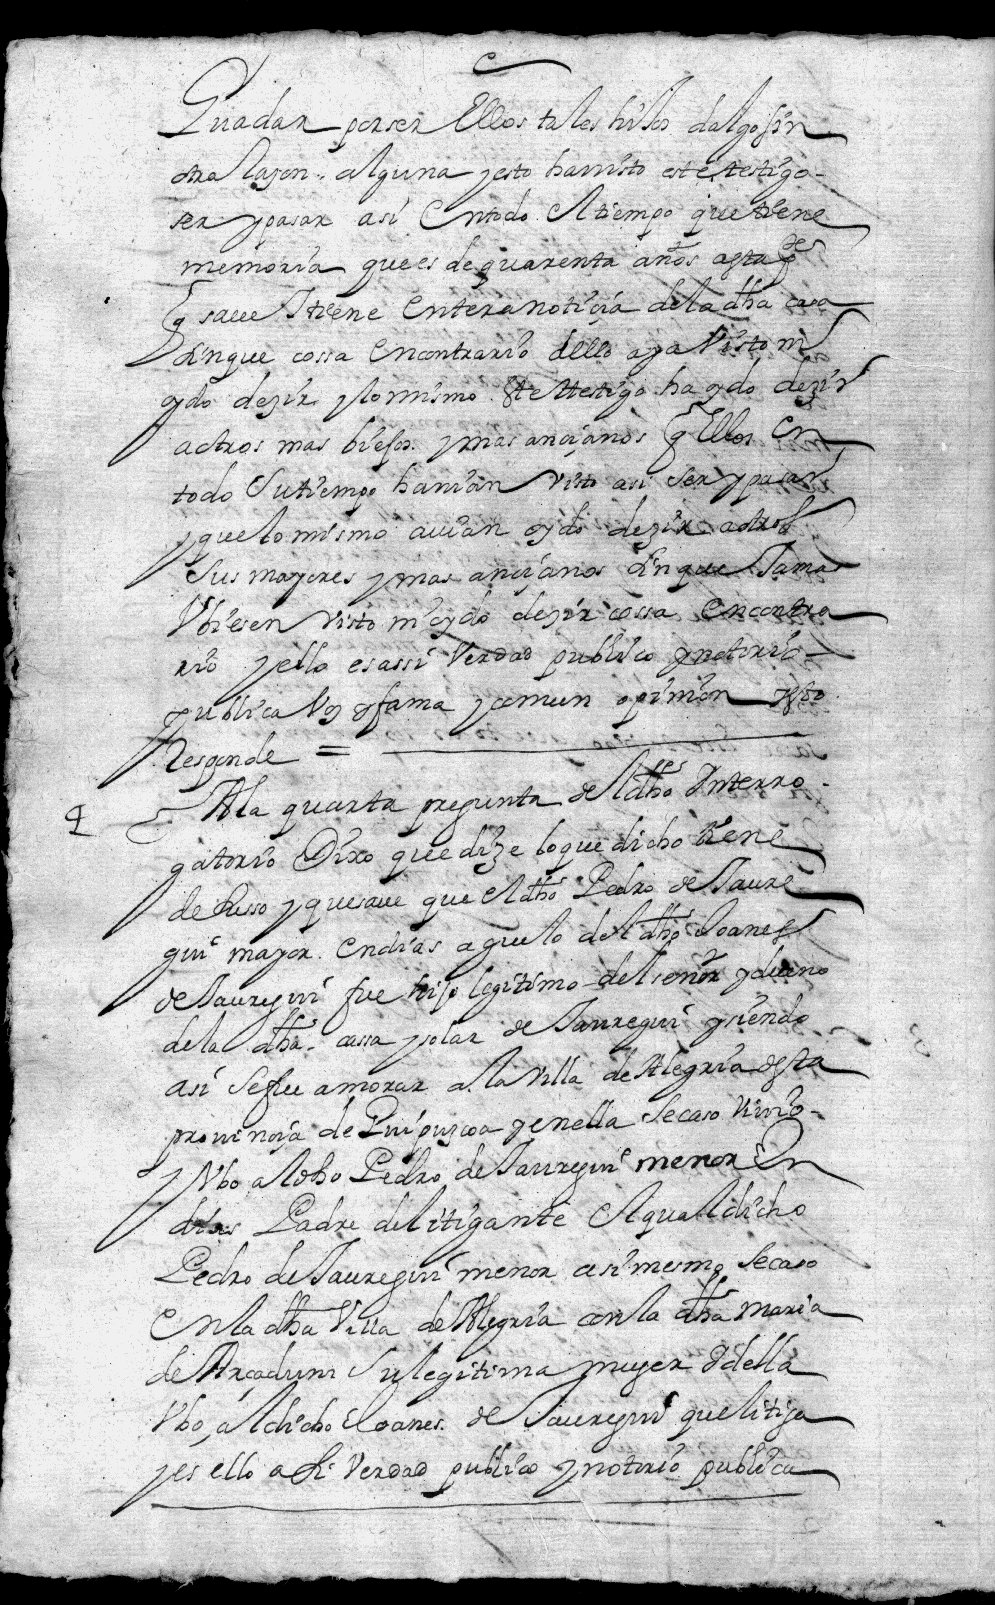 Guadar por ser Ellos tales hijos dalgo sin
otra Razon alguna y esto ha visto este testigo
ser y pasar asi En todo El tiempo que tiene
memoria que es de quarenta años a esta pte
q saue I tiene Entera noticia de la dha casa
sin que cossa En contrario dello aya Visto ni
oydo dezir y lo mismo este testigo ha oydo dezir
a otros mas biejos y mas ancianos q Ellos En
todo Su tiempo hauian visto asi Ser y pasar
y que lo mismo auian oydo dezir a otros
Sus mayores y mas ancianos sin que Jamas
Vbiesen visto ni oydo dezir cossa En contra
rio y ello es assi Verdad publico y notorio
publica Voz y fama y comun opinion y esto
Responde =
4 A la quarta pregunta del dho Interro
gatorio Dixo que dize lo que dicho tiene
de susso y que saue que El dho Pedro de Jaure
gui mayor En dias aguelo del dho Joanes
de Jauregui fue hijo legitimo del señor y dueno
de la dha cassa y solar de Jauregui y siendo
asi Se fue a morar a la Villa de Alegria desta
prouincia de Guipuzcoa y en ella Se caso Viuio
y Vbo al dho Pedro de Jauregui menor En
dias Padre del litigante El qual dicho
Pedro de Jauregui menor asi mesmo Se caso
En la dha Villa de Alegria con la dha maria
de Arcaduni Su legitima muger E della
Vbo al dicho Joanes de Jauregui que litiga
y es ello asi Verdad publico y notorio publica